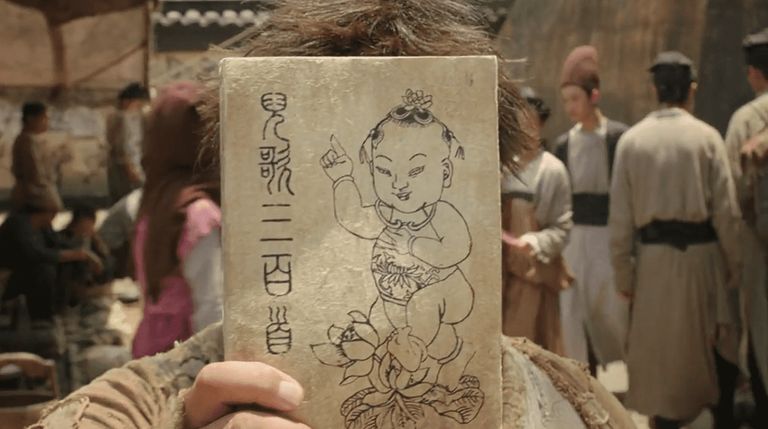 兒歌三百首